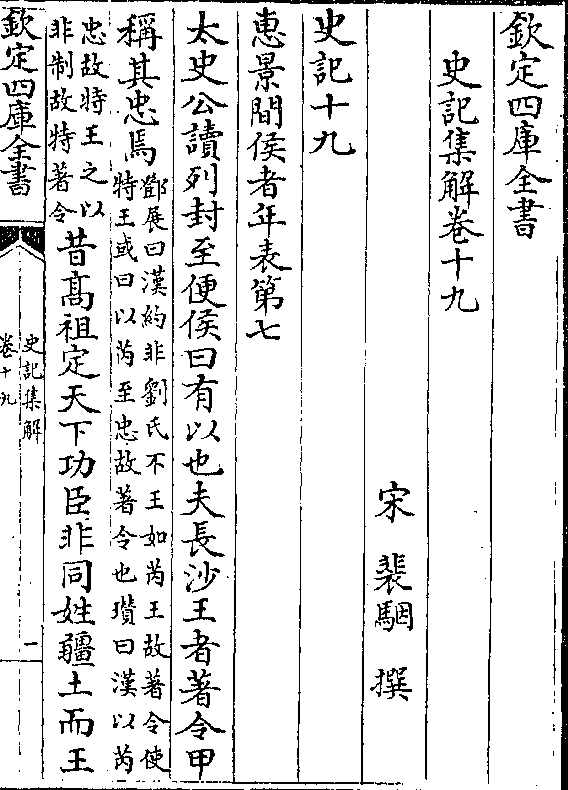 欽定四庫全書
史記集解卷十九
宋 裴駰 撰
史記十九
惠景間侯者年表第七
太史公讀列封至便侯曰有以也夫長沙王者著令甲
稱其忠焉
鄧展曰漢約非劉氏不王如芮王故著令使
特王或曰以芮至忠故著令也瓚曰漢以芮
忠故特王之以
非制故特著令
昔髙祖定天下功臣非同姓疆土而王
欽定四庫全書
史記集解
卷十九
一